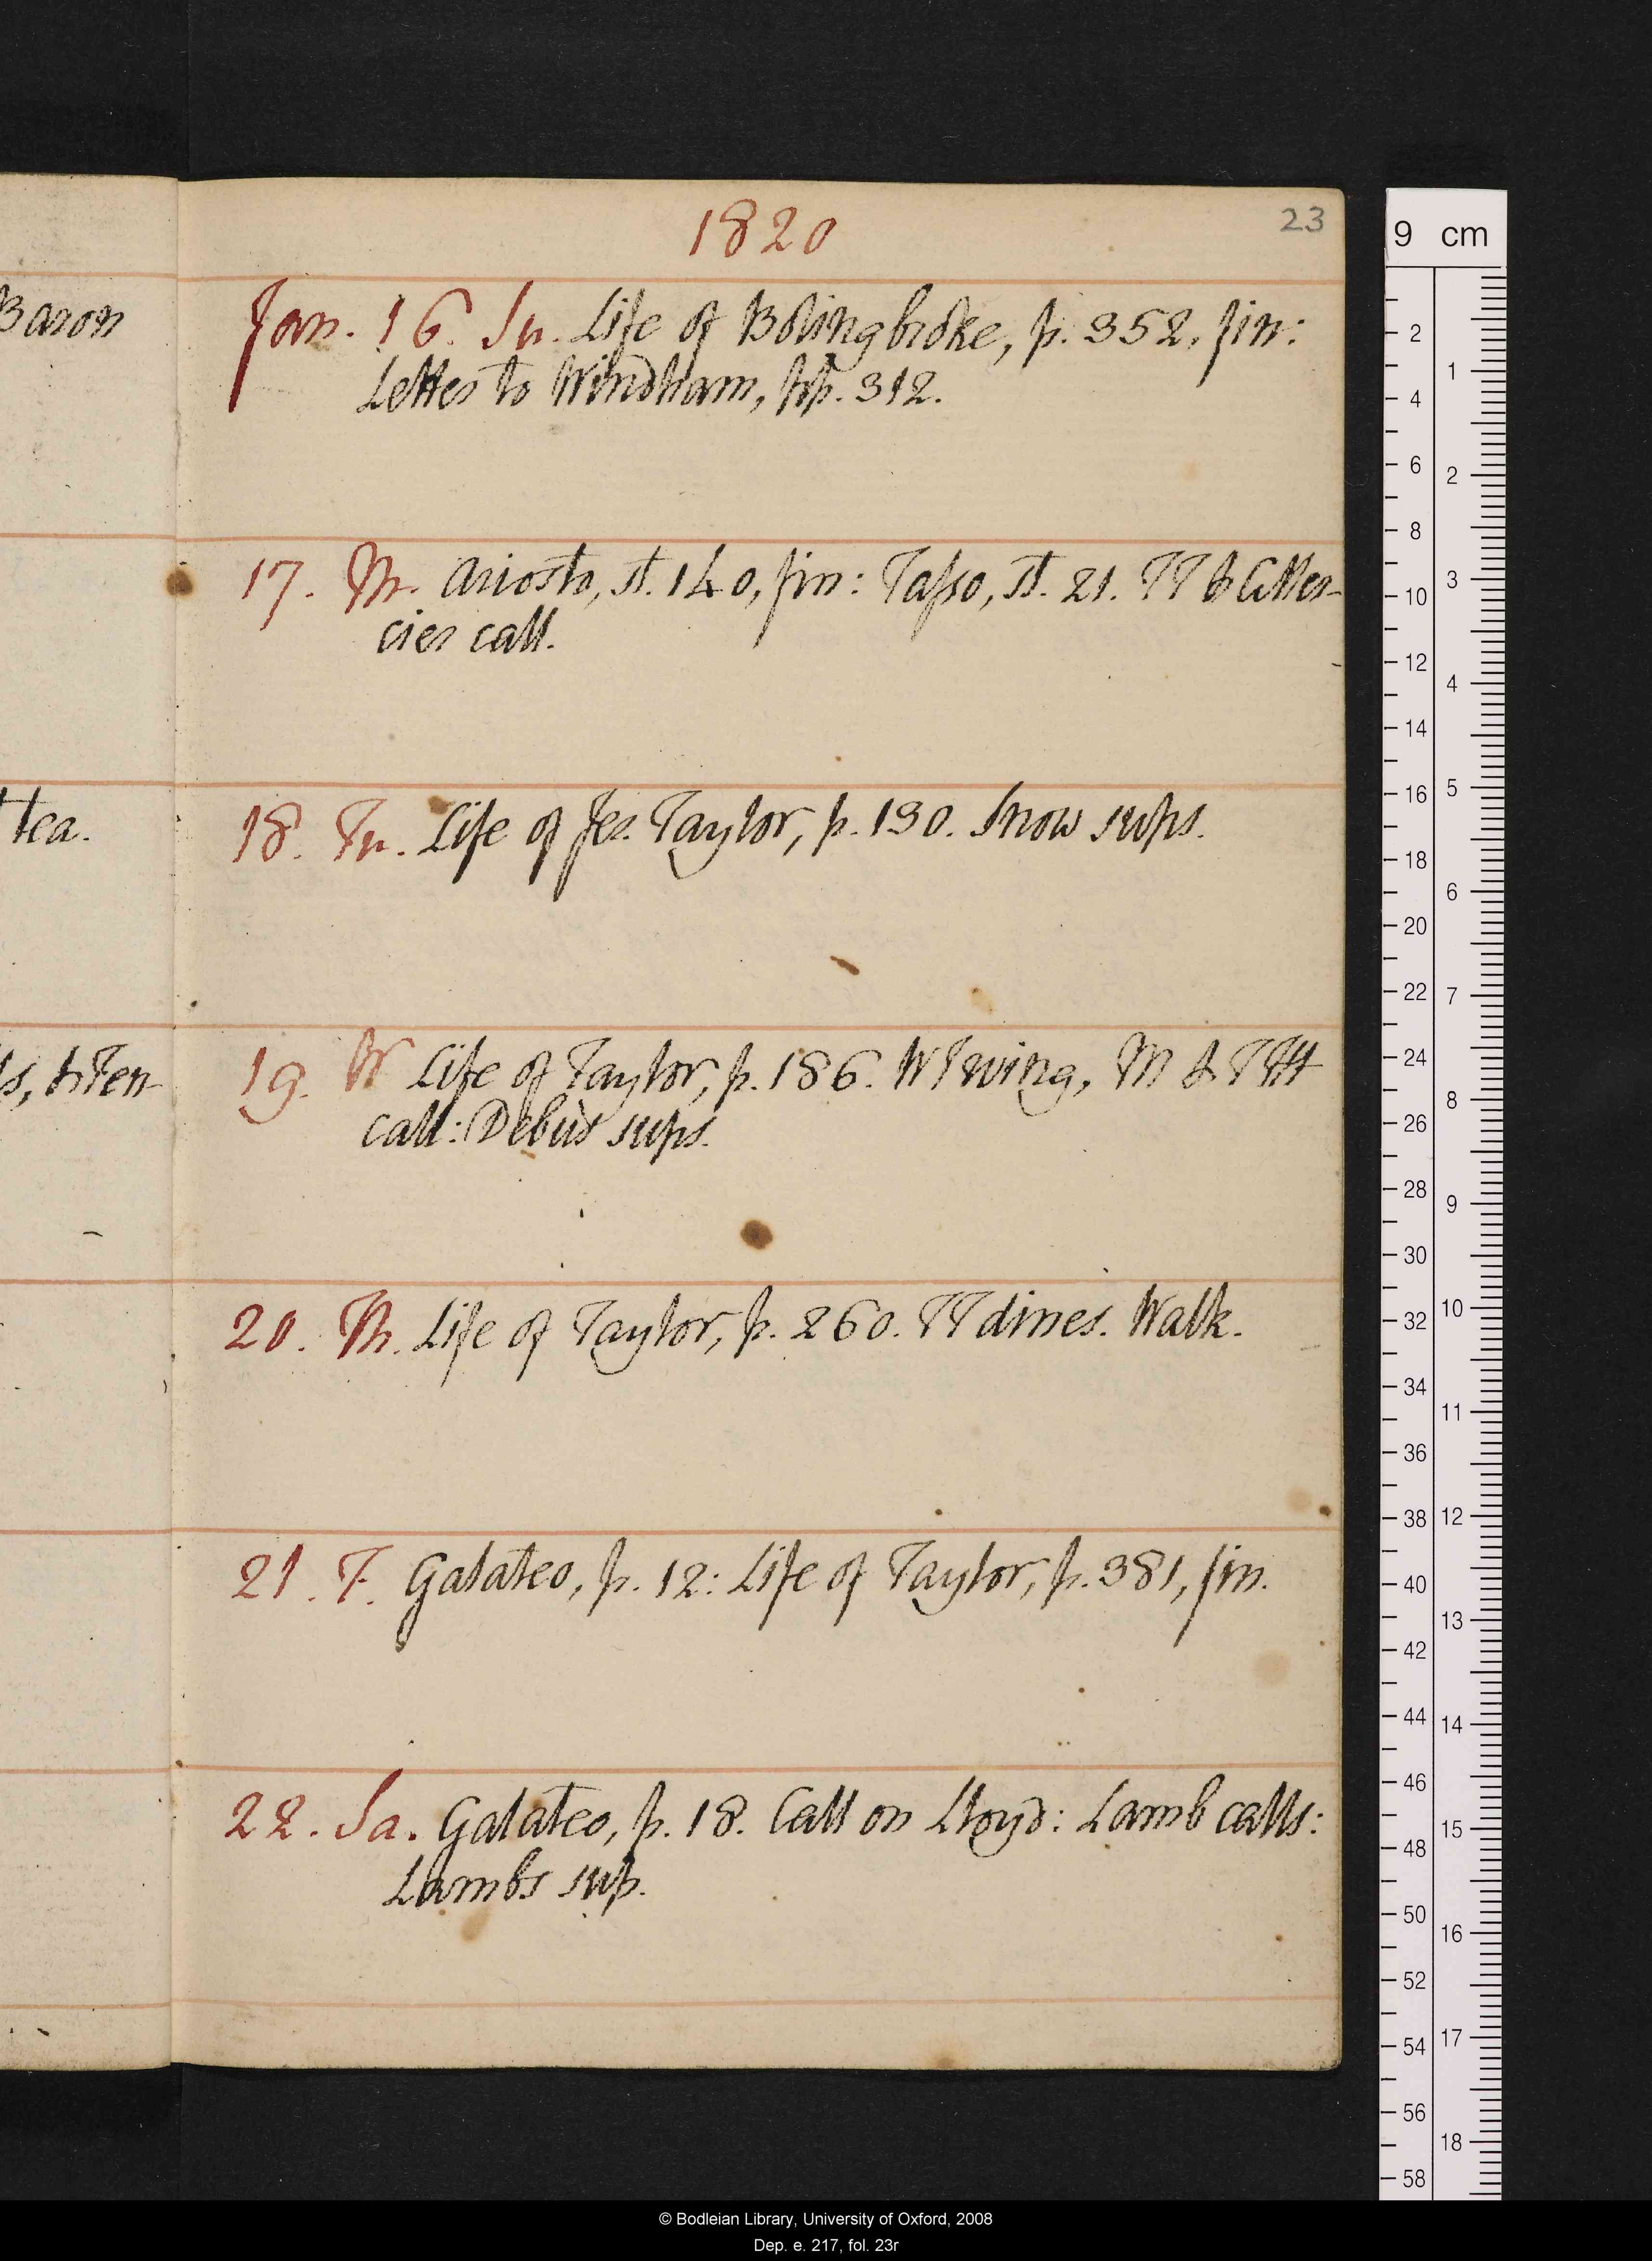 1820
23
Baron
Jan. 16. Su. Life of Bolingbroke, p. 352, fin:
Letter to Windham, pp. 312.
17. M. Ariosto, st. 140, fin: Tasso, st. 21. TT &
cies call.
tea.
18. Tu. Life of Jer. Taylor, p. 130. Snow sups.
19. W Life of Taylor, p. 186. W Irving, M &
call: Debût sups.
20. Th. Life of Taylor, p. 260. TT dines. Walk.
21. F. Galateo, p. 12: Life of Taylor, p. 381, fin.
22. Sa. Galateo, p. 18. Call on Lloyd: Lamb calls:
Lambs sup.
9 cm
2
4
6
8
10
12
14
16
18
20
22
24
26
28
30
32
34
36
38
40
42
44
46
48
50
52
54
56
58
1
2
3
4
5
6
7
8
9
10
11
12
13
14
15
16
17
18
© Bodleian Library, University of Oxford, 2008
Dep. e. 217, fol. 23r